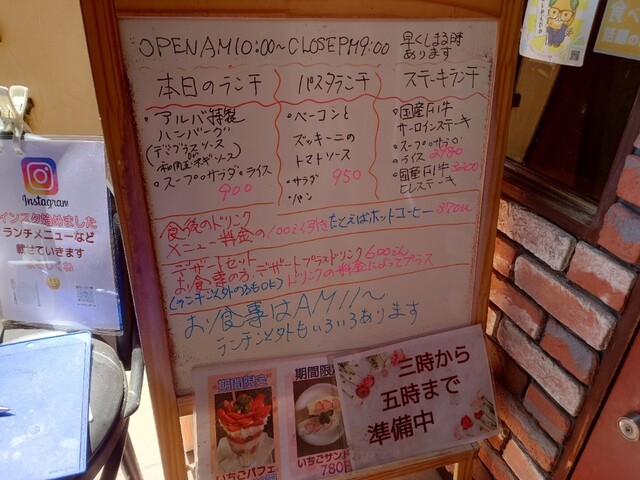 OPEN AM10:00~CLOSE PM9:00
早くしまる時
あります
本日のランチ
・アルバ特製
ハンバーグ
(デミグラスソース
or
和風玉ネギソース)
・スープ・サラダ・ライス
900
パスタランチ
・ベーコンと
ズッキーニの
トマトソース
・サラダ
・パン
950
ステーキランチ
・国産F1牛
サーロインステーキ
・スープ・サラダ
ライス 2980
・国産F1牛 3200
ヒレステーキ
食後のドリンク
メニュー料金の100えん引き たとえばホットコーヒー
デザートセット
お食事の方、デザートプラスドリンク600えん
(ランチ以外のものOK) ドリンクの料金によってプラス
お食事はAM11~
ランチ以外もいろいろあります
Instagram
インスタ始めました
ランチメニューなど
載せていきます
期間限定
いちごパフェ
期間限
いちごサンド
780
三時から
五時まで
準備中